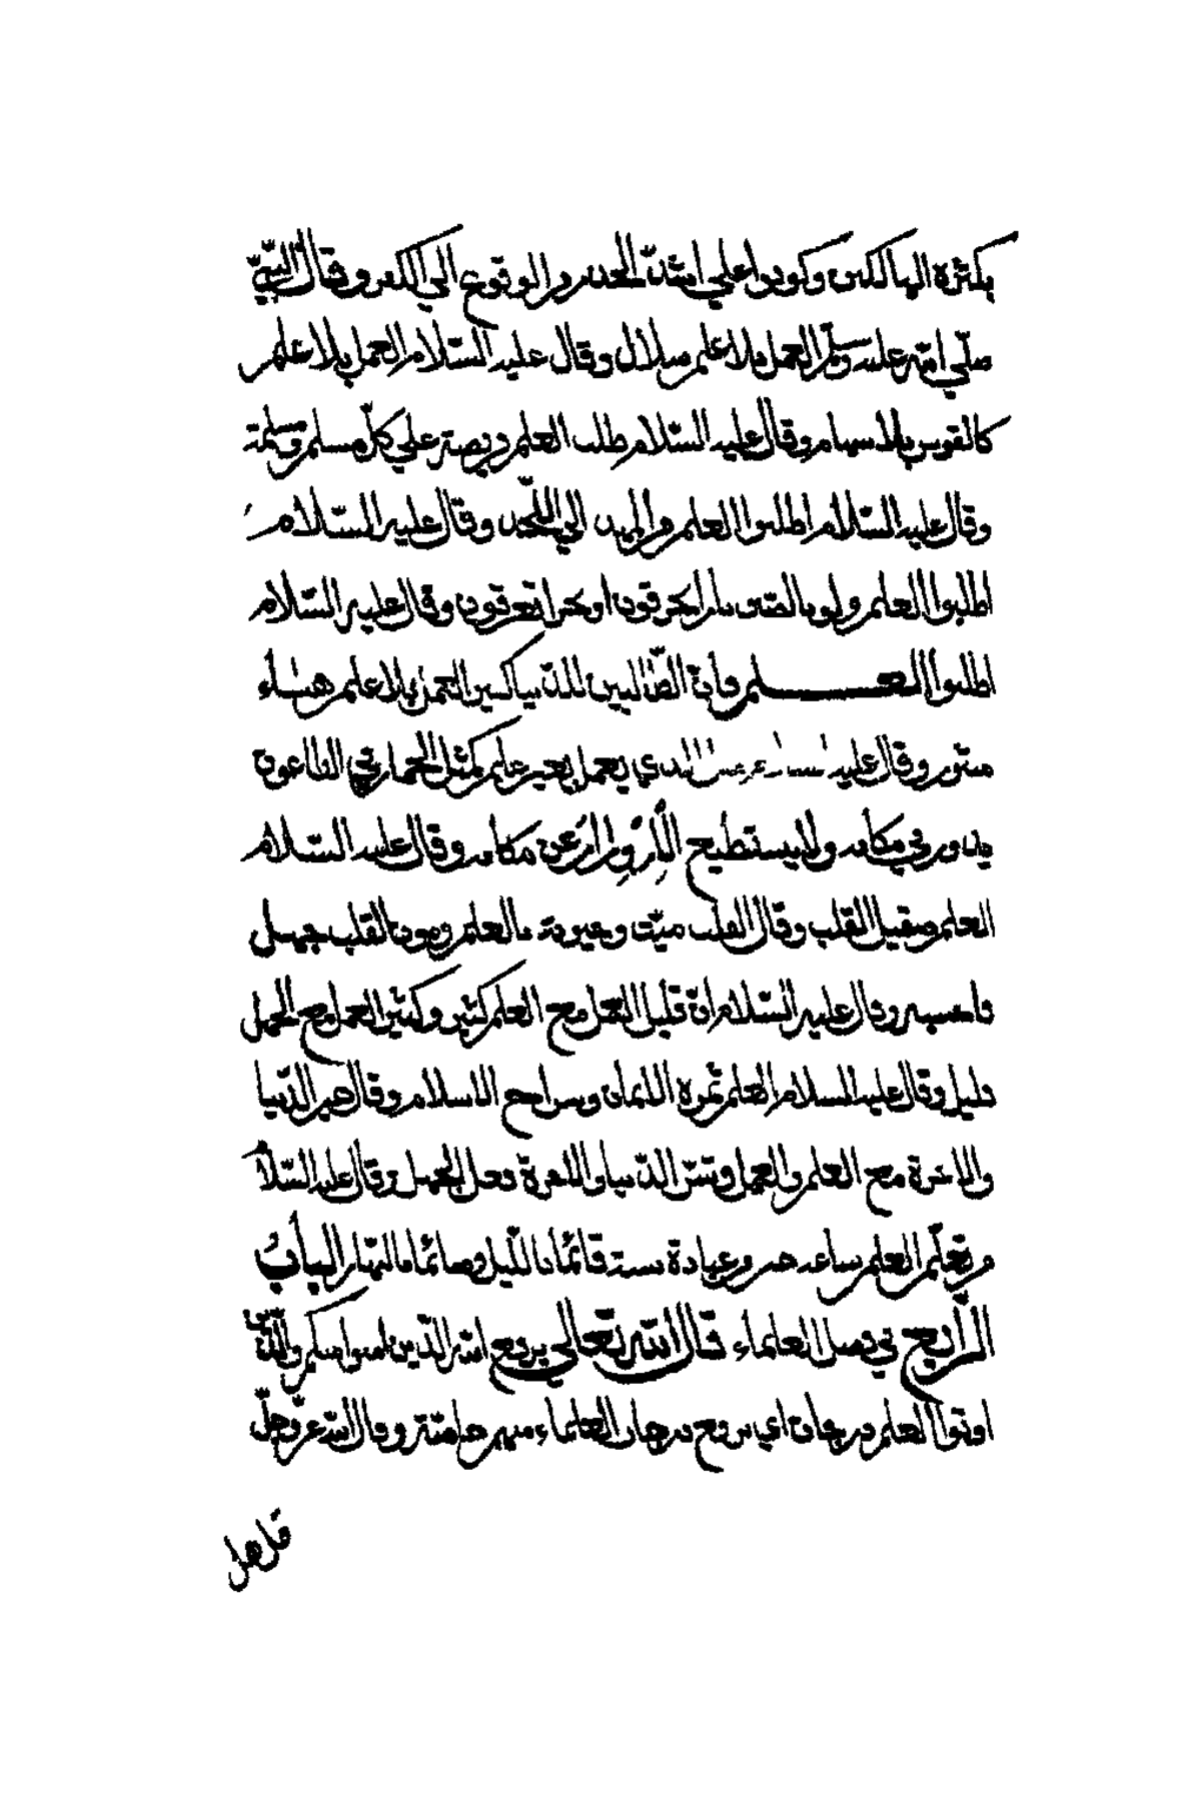 بكثرة الهالكين وكونوا علي اشدّ الحذر من الوقوع الي الكفر وقال النبيّ
صلّي الله عليه وسلّم العمل بلا علم ضلال وقال عليه السّلام العمل بلا علم
كالقوس بلا سهام وقال عليه السّلام طلب العلم فريضة علي كلّ مسلم ومسلمة
وقال عليه السّلام اطلبوا العلم من المهد الي اللّحد وقال عليه السّلام
اطلبوا العلم ولو بالصّين وقال عليه السّلام
اطلبوا العلم فانّ العمل بلا علم هباء
منثور وقال عليه الذي يعمل بغير علم كمثل الحمار في الطاعون
يدور في مكانه ولا يستطيع عن مكانه وقال عليه السّلام
العلم صقيل القلب وقال القلب ميّت وحيوته بالعلم وموت القلب جهل
فاحسبه وقال عليه السّلام انّ قليل العمل مع العلم كثير وكثير العمل مع الجهل
قليل وقال عليه السلام العلم ثمرة الايمان وسراج الاسلام وقال خير الدّنيا
والاخرة مع العلم والعمل وشرّ الدّنيا والاخرة مع الجهل وقال عليه السّلام
من تعلّم العلم ساعة خير من عبادة سنة قائما باللّيل وصائما بالنّهار الباب
الرّابع في فضل العلماء قال الله تعالي يرفع الله الذّين امنوا منكم والّذين
اوتوا العلم درجات اي يرفع درجات العلماء منهم خاصّة وقال الله عزّ وجلّ
قل هل